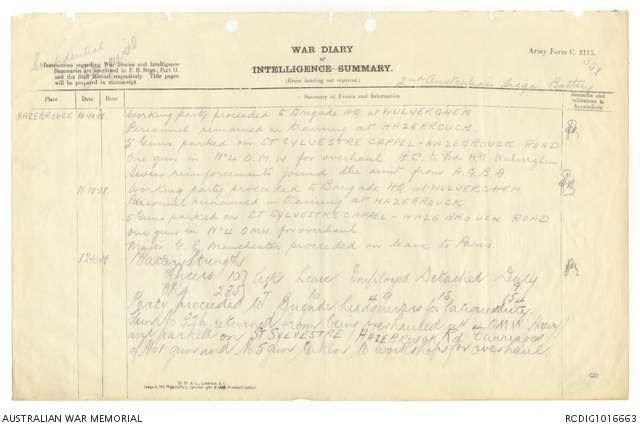 Confidential
WAR DIARY
or
INTELLIGENCE SUMMARY.
(Erase heading not required)
Army Form C. 2118.
Instructions regarding War Diaries and Intelligence
Summaries are contained in F. S. Regs., Part II.
and the Staff Manual respectively. Title pages
will be prepared in manuscript.
2nd Australian Siege Battery
Place Date Hour Summary of Events and Information Remarks and references to Appendices
HAZEBROUCK 10.10.18. Working party proceeded to Brigade HQ at WULVERGHEM
Personnel remained in training at HAZEBROUCK.
5 Guns parked on ST SYLVESTRE CAPPEL - HAZEBROUCK ROAD
One gun in No 4 O.M.W. for overhaul. O.C. to Bde HQ Wulverghem
Seven reinforcements joined the unit from A.G.B.D
11.10.18. Working party proceeded to Brigade HQ at WULVERGHEM
Personnel remained in training at HAZEBROUCK.
5 Guns parked on ST SYLVESTRE CAPPEL - HAZEBROUCK ROAD
One gun in No 4 O.M.W. for overhaul
Major G. E. Manchester proceeded on leave to Paris.
Battery Strength
Officers Leave Employed Detached Duty
Party proceeded to Brigade Headquarters for fatigue duty
returned from being overhauled at 4 O.M.W.
and parked on ST SYLVESTRE HAZEBROUCK Rd. Carriages
of No 1 gun and No 5 gun taken to workshops for overhaul.
AUSTRALIAN WAR MEMORIAL
RCDIG1016663